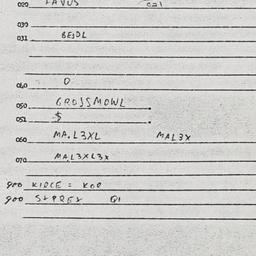 020 FAVUS 021
030
031 BESDL
040 0
050 GROSSMOWL
051 $
060 MA.L3XL MAL3X
070 MAL3XL3X
900 KIRCE = KOR
900 S+PREX Q1